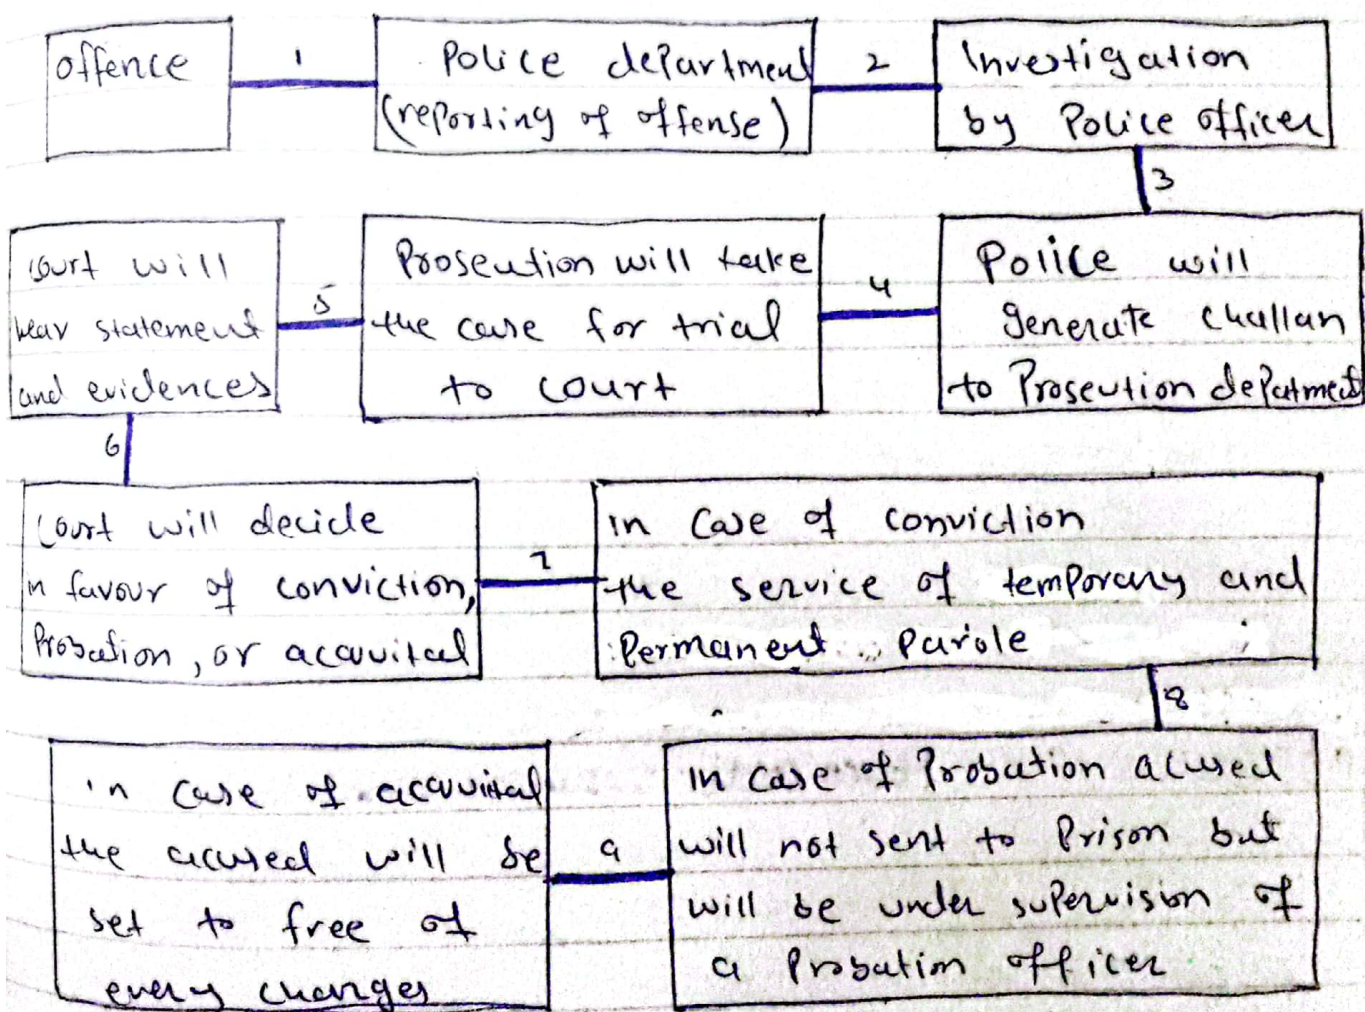 offence
1
Police department
(reporting of offense)
2
Investigation
by Police officer
3
Police will
generate challan
to Proseution depatment
4
Proseution will take
the case for trial
to court
5
court will
hear statement
and evidences
6
court will decide
in favour of conviction,
Probation, or acquital
7
in case of conviction
the service of temporary and
Permanent parole
8
in case of Probation acused
will not sent to Prison but
will be under supervision of
a Probation officer
9
in case of acquital
the acused will be
set to free of
every charges